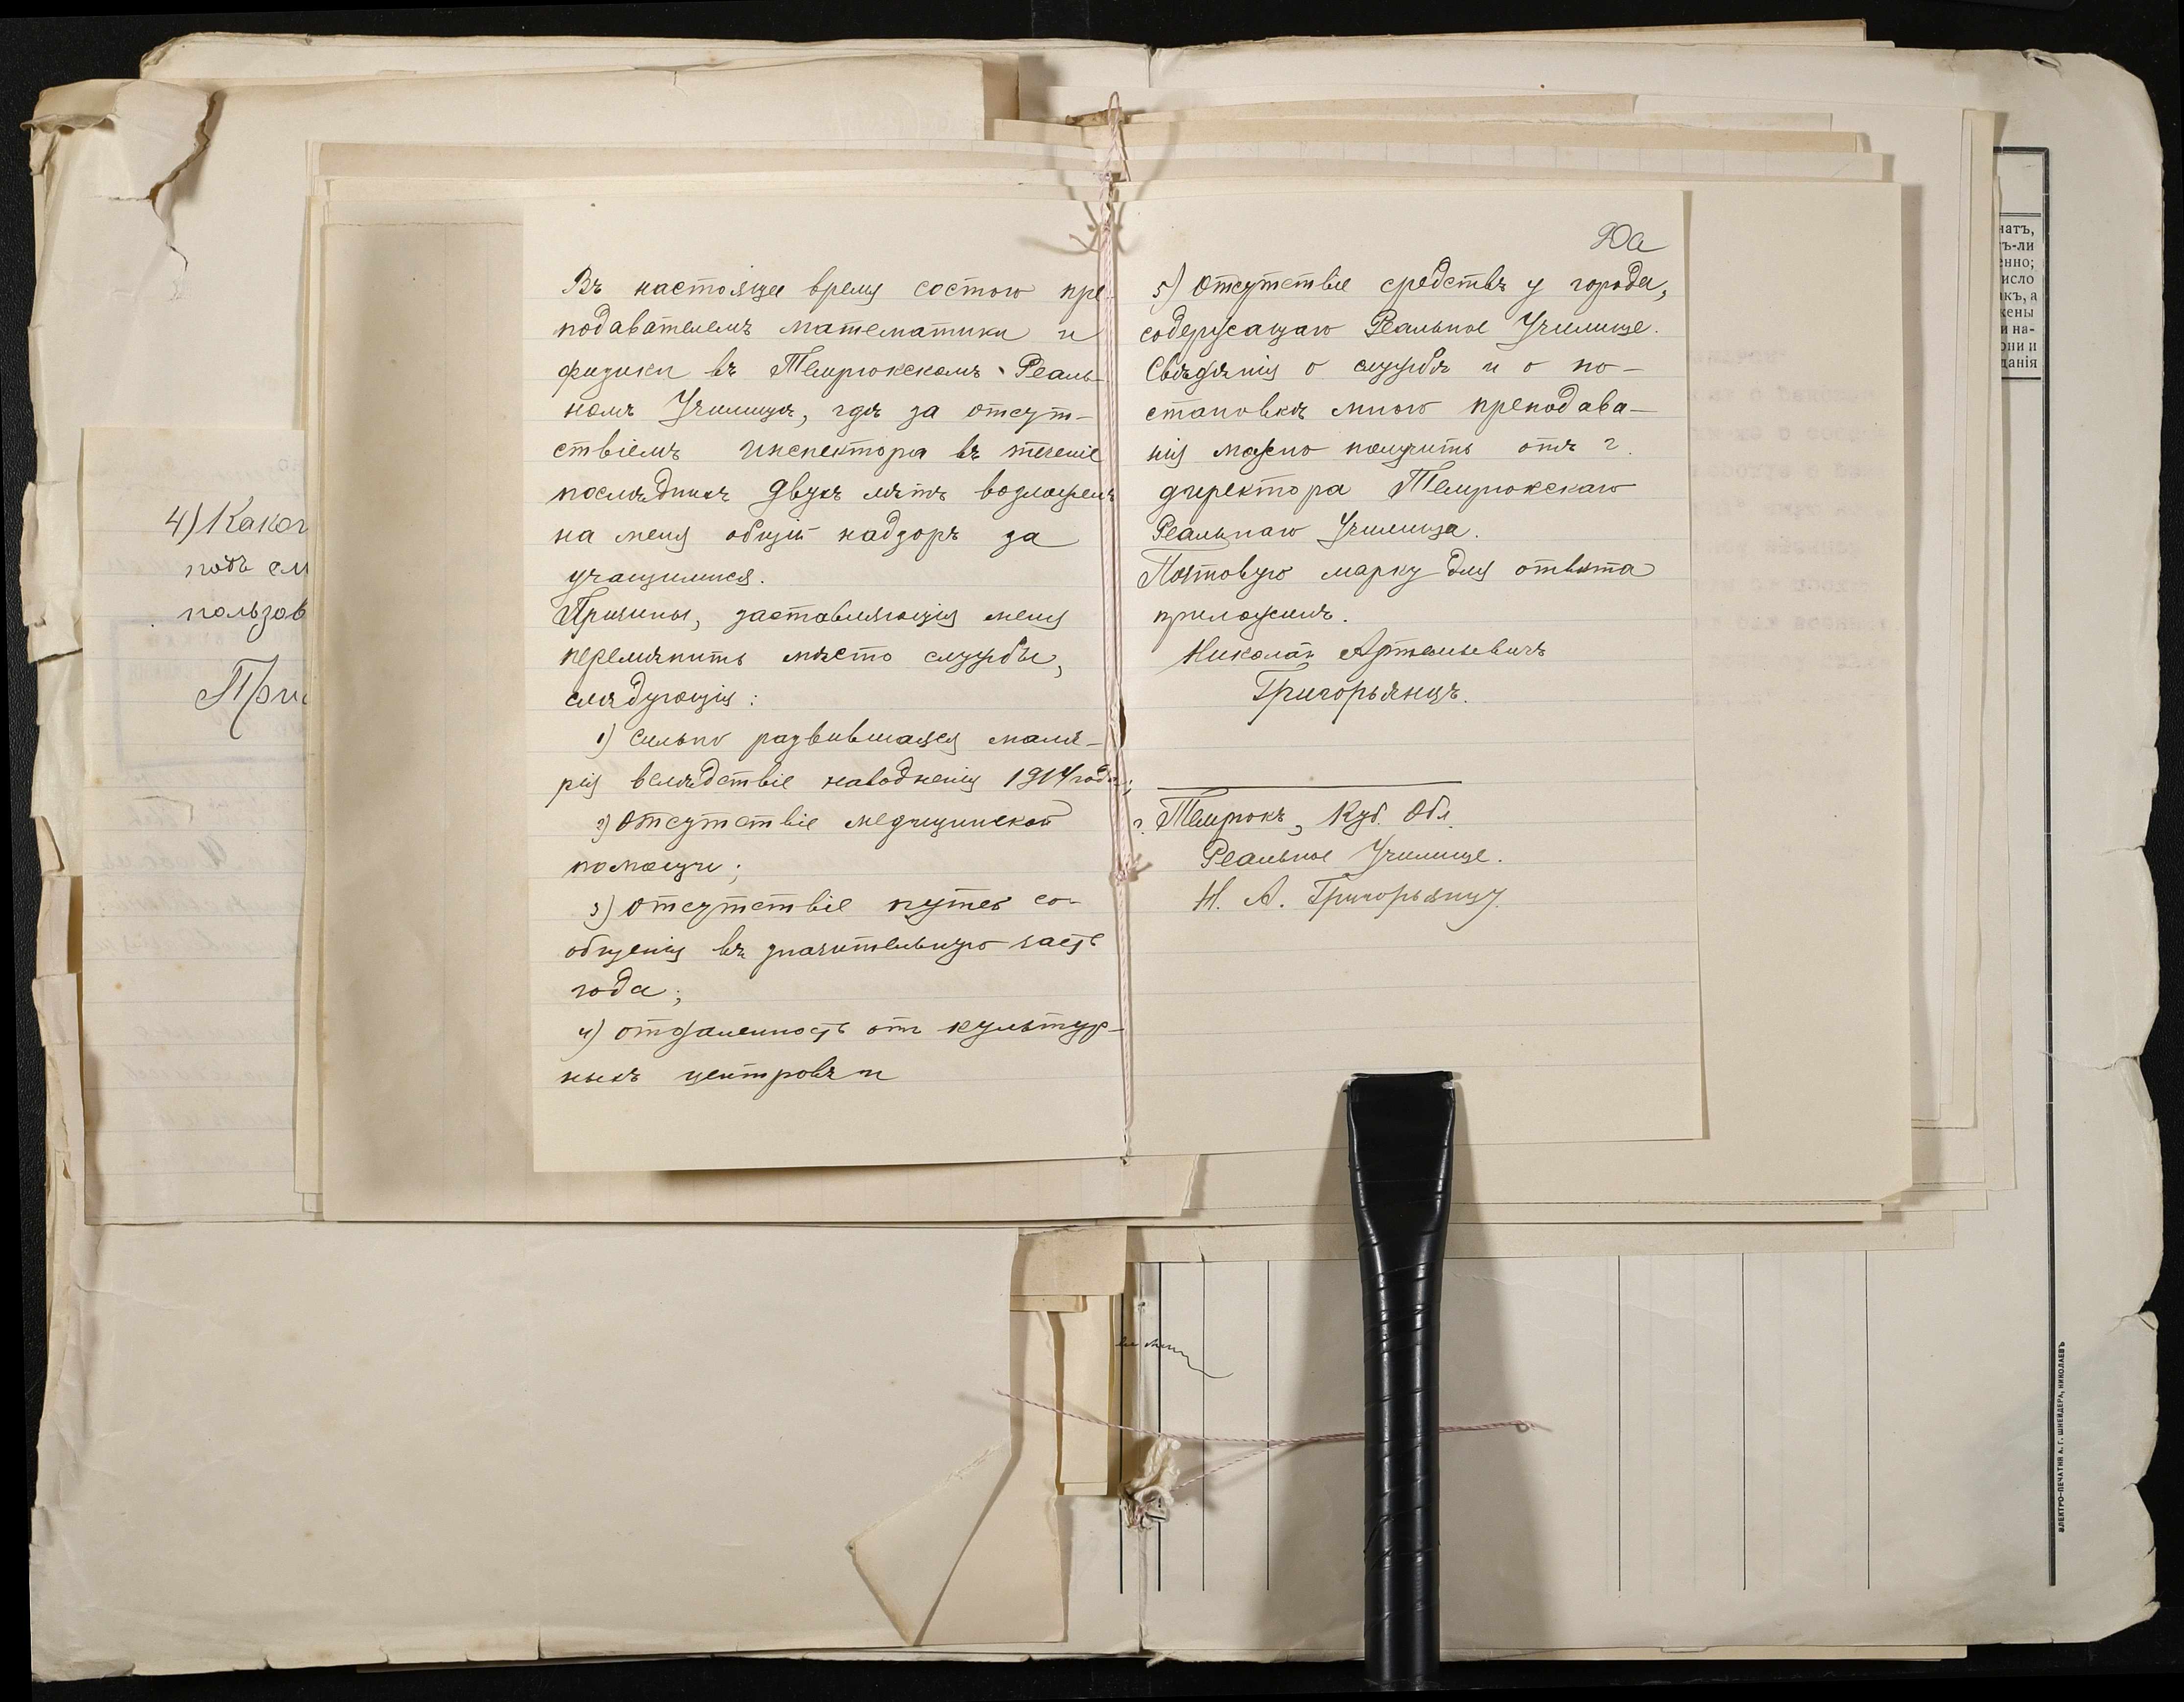 Въ настоящее время состою пре-
подавателемъ математики и
физики въ Темрюкскомъ Реаль-
номъ Училищѣ, гдѣ за отсут-
ствіемъ инспектора въ теченіе
послѣднихъ двухъ лѣтъ возложенъ
на меня общій надзоръ за
учащимися.
Причины, заставляющія меня
перемѣнить мѣсто службы,
слѣдующія:
1) Сильно развившаяся маля-
рія вслѣдствіе наводненія 1914 года;
2) Отсутствіе медицинской
помощи;
3) отсутствіе путей со-
общенія въ значительную часть
года;
4) отдаленность отъ культур-
ныхъ центровъ и
5) Отсутствіе средствъ у города,
содержащаго Реальное Училище.
Свѣдѣнія о службѣ и о по-
становкѣ мною преподава-
нія можно получить отъ г.
директора Темрюкскаго
Реальнаго Училища.
Почтовую марку для отвѣта
приложилъ.
Николай Артемьевичъ
Григорьянцъ.
г. Темрюкъ, Куб. Обл.
Реальное Училище.
Н. А. Григорьянцу.
4) Каког
подъ см
пользов
При
натъ,
ъ-ли
енно;
исло
икъ, а
жены
и на-
они и
данія
ЭЛЕКТРО-ПЕЧАТНЯ А. Г. ШНЕЙДЕРА, НИКОЛАЕВЪ